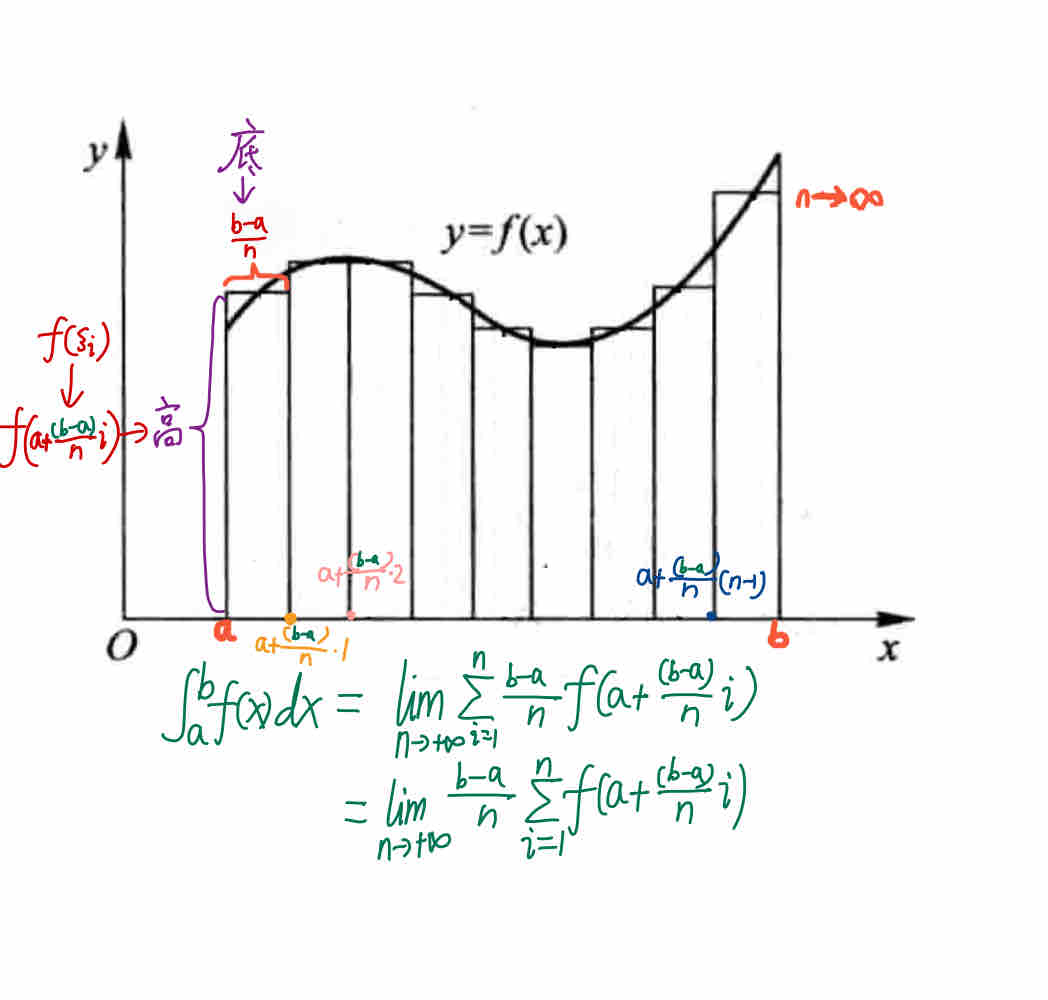 y
底
↓
b-a/n
n→∞
y=f(x)
f(ξi)
↓
f(a+(b-a)/n i)→高
a+(b-a)/n·2
a+(b-a)/n(n-1)
O
a
a+(b-a)/n·1
b
x
∫_a^b f(x)dx = lim_{n→+∞} ∑_{i=1}^n b-a/n f(a+(b-a)/n i)
= lim_{n→+∞} b-a/n ∑_{i=1}^n f(a+(b-a)/n i)